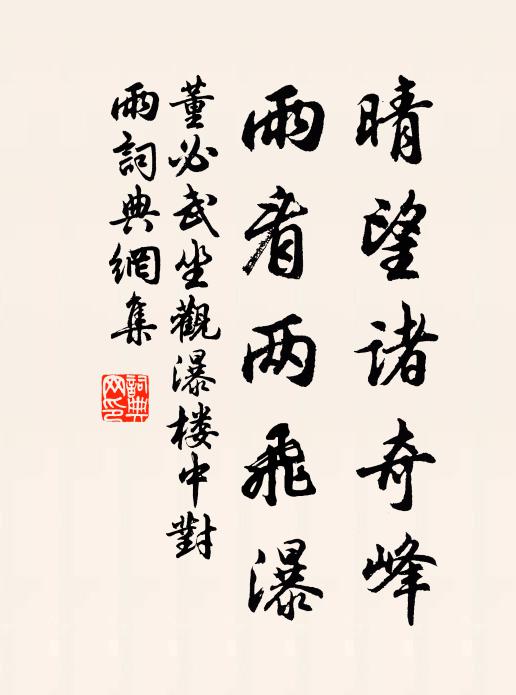 晴望诸奇峰
雨看两飛瀑
董必武坐觀瀑楼中對
雨詞典網集
詞典
网印